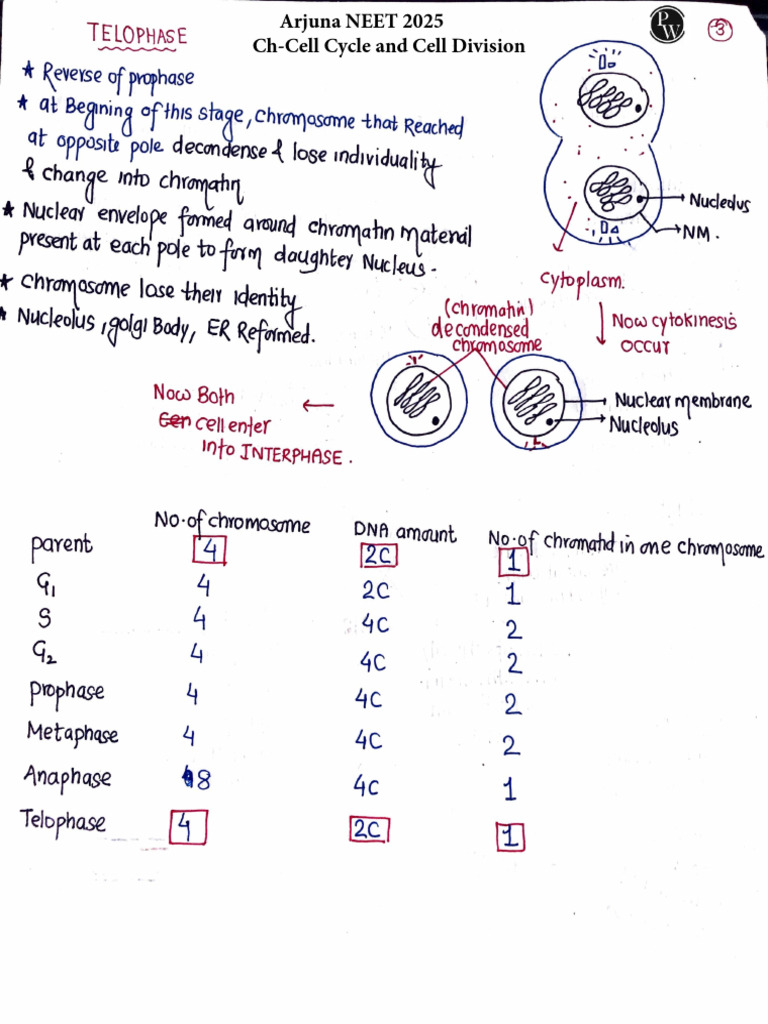 Arjuna NEET 2025
Ch-Cell Cycle and Cell Division
PW
3
TELOPHASE
★ Reverse of prophase
★ at Begining of this stage, chromosome that Reached
at opposite pole decondense & lose individuality
& change into chromatin
★ Nuclear envelope formed around chromatin material
present at each pole to form daughter Nucleus.
★ Chromosome lose their identity
★ Nucleolus, golgi Body, ER Reformed.
Nucleolus
NM.
Cytoplasm.
Now cytokinesis
occur
(chromatin)
decondensed
chromosome
Nuclear membrane
Nucleolus
Now Both
cell enter
into INTERPHASE.
No. of chromosome DNA amount No. of chromatid in one chromosome
parent 4 2C 1
G1 4 2C 1
S 4 4C 2
G2 4 4C 2
prophase 4 4C 2
Metaphase 4 4C 2
Anaphase 8 4C 1
Telophase 4 2C 1